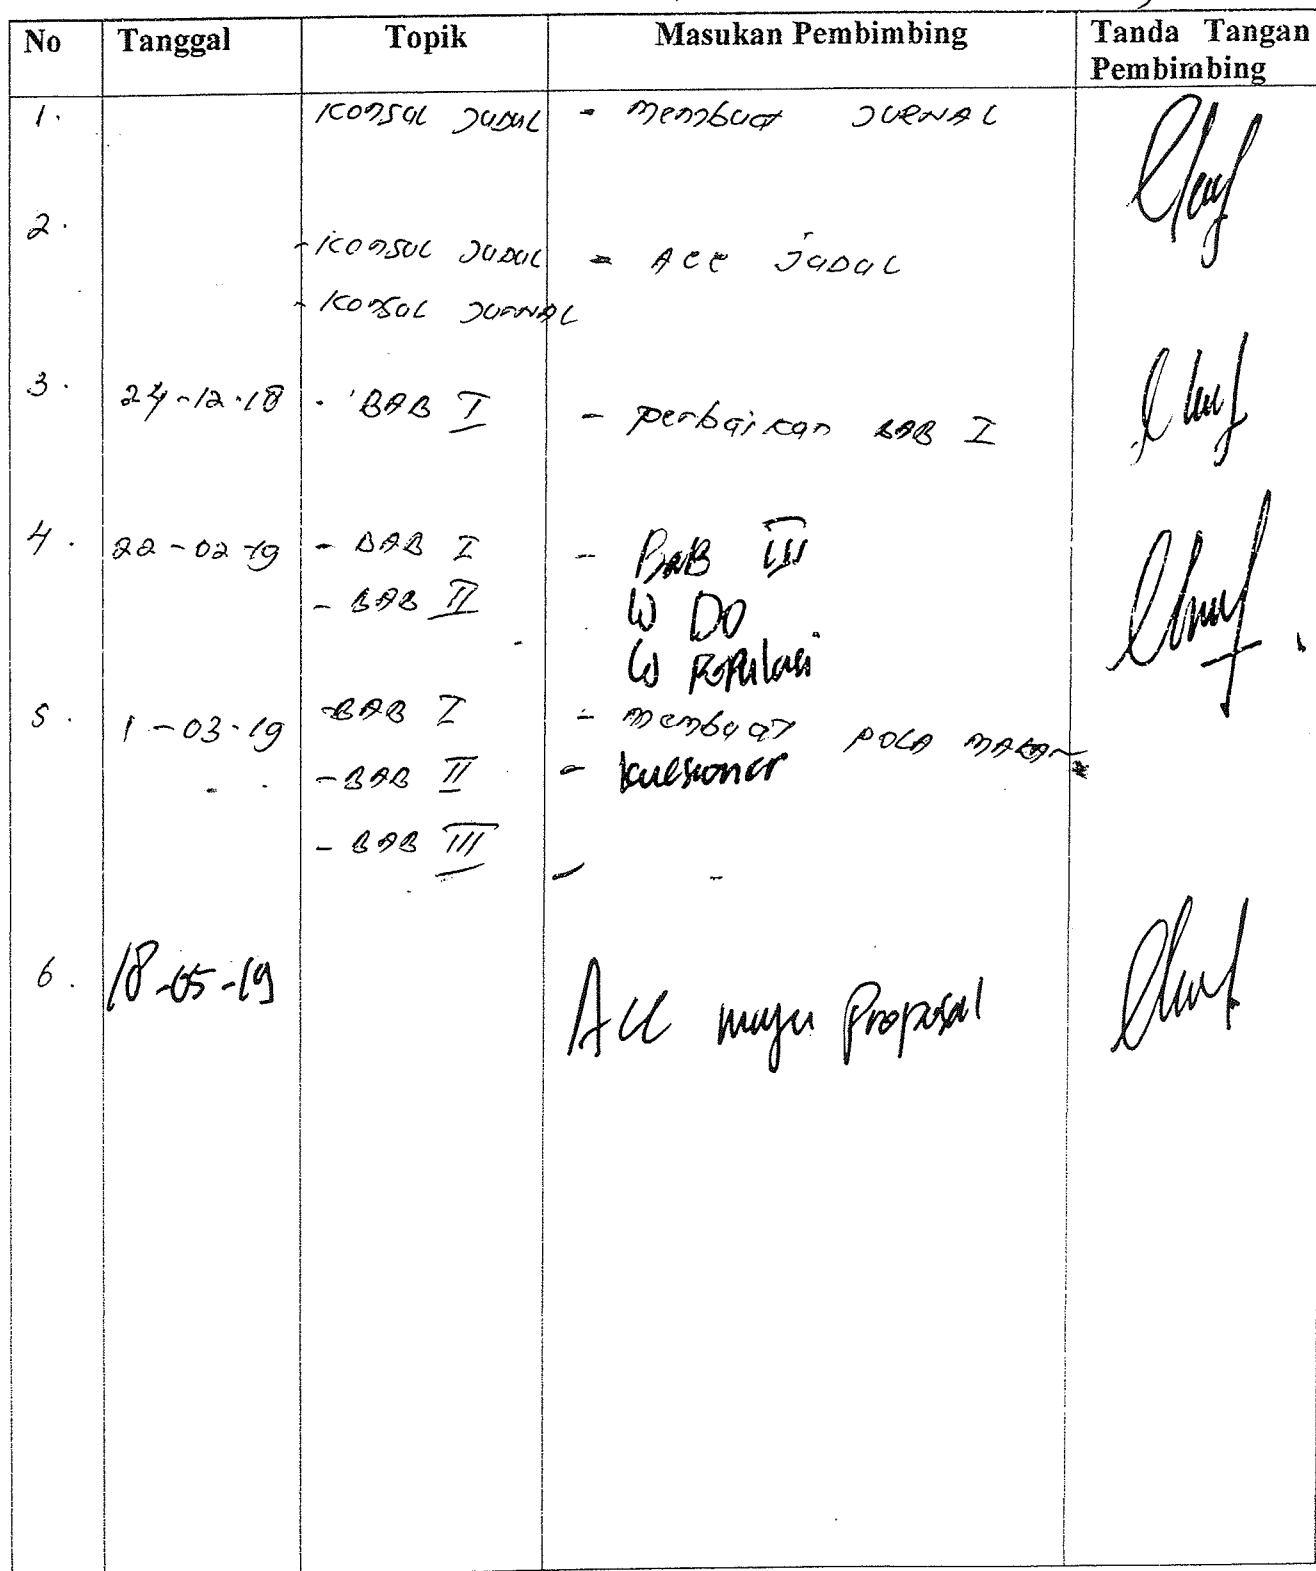 No Tanggal Topik Masukan Pembimbing Tanda Tangan
Pembimbing
1. Konsul Judul - membuat JURNAL
2. - Konsul Judul - Acc Judul
- Konsul Jurnal
3. 24-12-18 - BAB I - perbaikan BAB I
4. 22-02-19 - BAB I - BAB III
- BAB II DO
Populasi
5. 1-03-19 - BAB I - membuat POLA MAKAN
- BAB II - kuesioner
- BAB III -
6. 18-05-19 Acc maju Proposal